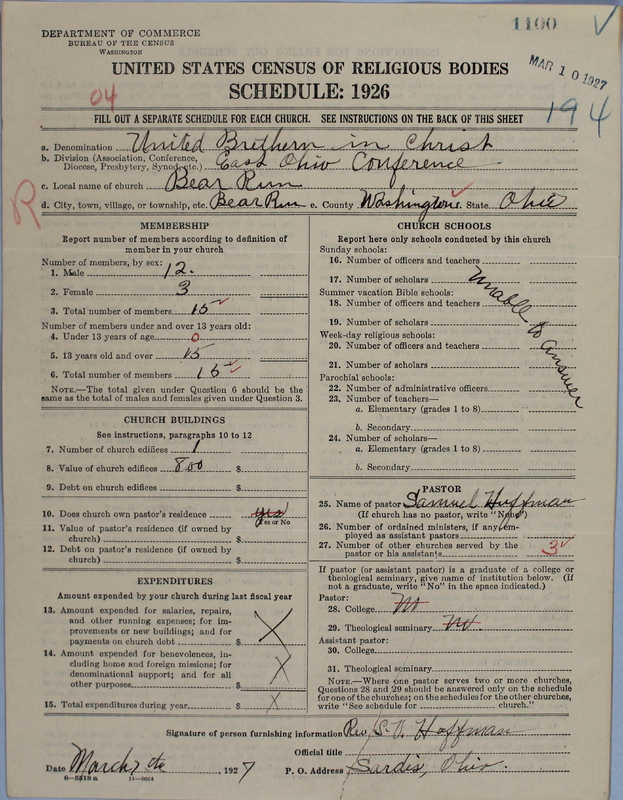 1100
DEPARTMENT OF COMMERCE
BUREAU OF THE CENSUS
WASHINGTON
MAR 10 1927
UNITED STATES CENSUS OF RELIGIOUS BODIES
SCHEDULE: 1926
04
194
FILL OUT A SEPARATE SCHEDULE FOR EACH CHURCH. SEE INSTRUCTIONS ON THE BACK OF THIS SHEET
a. Denomination United Brethern in Christ
b. Division (Association, Conference, Diocese, Presbytery, Synod, etc.) East Ohio Conference
c. Local name of church Bear Run
R
d. City, town, village, or township, etc. Bear Run e. County Washington State Ohio
MEMBERSHIP
Report number of members according to definition of
member in your church
Number of members, by sex:
1. Male 12.
2. Female 3
3. Total number of members 15
Number of members under and over 13 years old:
4. Under 13 years of age 0
5. 13 years old and over 15
6. Total number of members 15
NOTE.—The total given under Question 6 should be the
same as the total of males and females given under Question 3.
CHURCH BUILDINGS
See instructions, paragraphs 10 to 12
7. Number of church edifices 1
8. Value of church edifices 800 $
9. Debt on church edifices $
10. Does church own pastor's residence yes
Yes or No
11. Value of pastor's residence (if owned by
church) $
12. Debt on pastor's residence (if owned by
church) $
EXPENDITURES
Amount expended by your church during last fiscal year
13. Amount expended for salaries, repairs,
and other running expenses; for im-
provements or new buildings; and for
payments on church debt $ X
14. Amount expended for benevolences, in-
cluding home and foreign missions; for
denominational support; and for all
other purposes $ X
15. Total expenditures during year $ X
CHURCH SCHOOLS
Report here only schools conducted by this church
Sunday schools:
16. Number of officers and teachers
17. Number of scholars
Unable to answer
Summer vacation Bible schools:
18. Number of officers and teachers
19. Number of scholars
Week-day religious schools:
20. Number of officers and teachers
21. Number of scholars
Parochial schools:
22. Number of administrative officers
23. Number of teachers—
a. Elementary (grades 1 to 8)
b. Secondary
24. Number of scholars—
a. Elementary (grades 1 to 8)
b. Secondary
PASTOR
25. Name of pastor Samuel Huffman
(If church has no pastor, write "None")
26. Number of ordained ministers, if any, em-
ployed as assistant pastors
27. Number of other churches served by the
pastor or his assistants 3
If pastor (or assistant pastor) is a graduate of a college or
theological seminary, give name of institution below. (If
not a graduate, write "No" in the space indicated.)
Pastor:
28. College No
29. Theological seminary No.
Assistant pastor:
30. College
31. Theological seminary
NOTE.—Where one pastor serves two or more churches,
Questions 28 and 29 should be answered only on the schedule
for one of the churches; on the schedules for the other churches,
write "See schedule for church."
Signature of person furnishing information Rev. S. V. Hoffman
Official title
Date March 7th, 1927 P. O. Address Sardis, Ohio.
8-5419a 11-8614